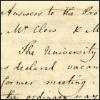 Answers to the Pro
Mr Clew & M
The University
declared vacan
former meeting